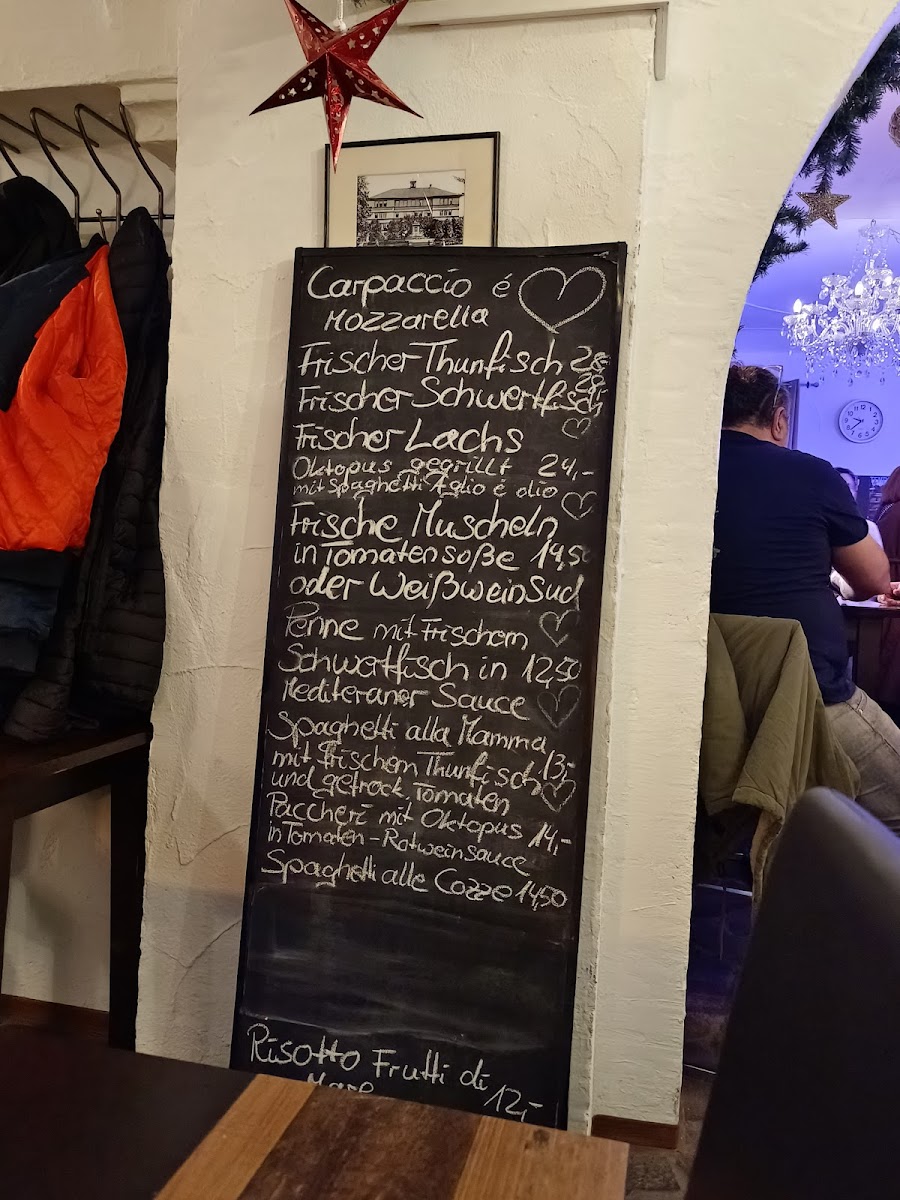 Carpaccio é
Mozzarella
Frischer Thunfisch
Frischer Schwertfisch
Frischer Lachs
Oktopus gegrillt 24,-
mit Spaghetti Aglio é olio
Frische Muscheln
in Tomatensoße 14,50
oder Weißweinsud
Penne mit Frischem
Schwertfisch in 12,50
Mediteraner Sauce
Spaghetti alla Mamma
mit frischem Thunfisch 13,-
und getrock Tomaten
Paccheri mit Oktopus 14,-
in Tomaten-Rotweinsauce
Spaghetti alle Cozze 14,50
Risotto Frutti di
Mare 12,-